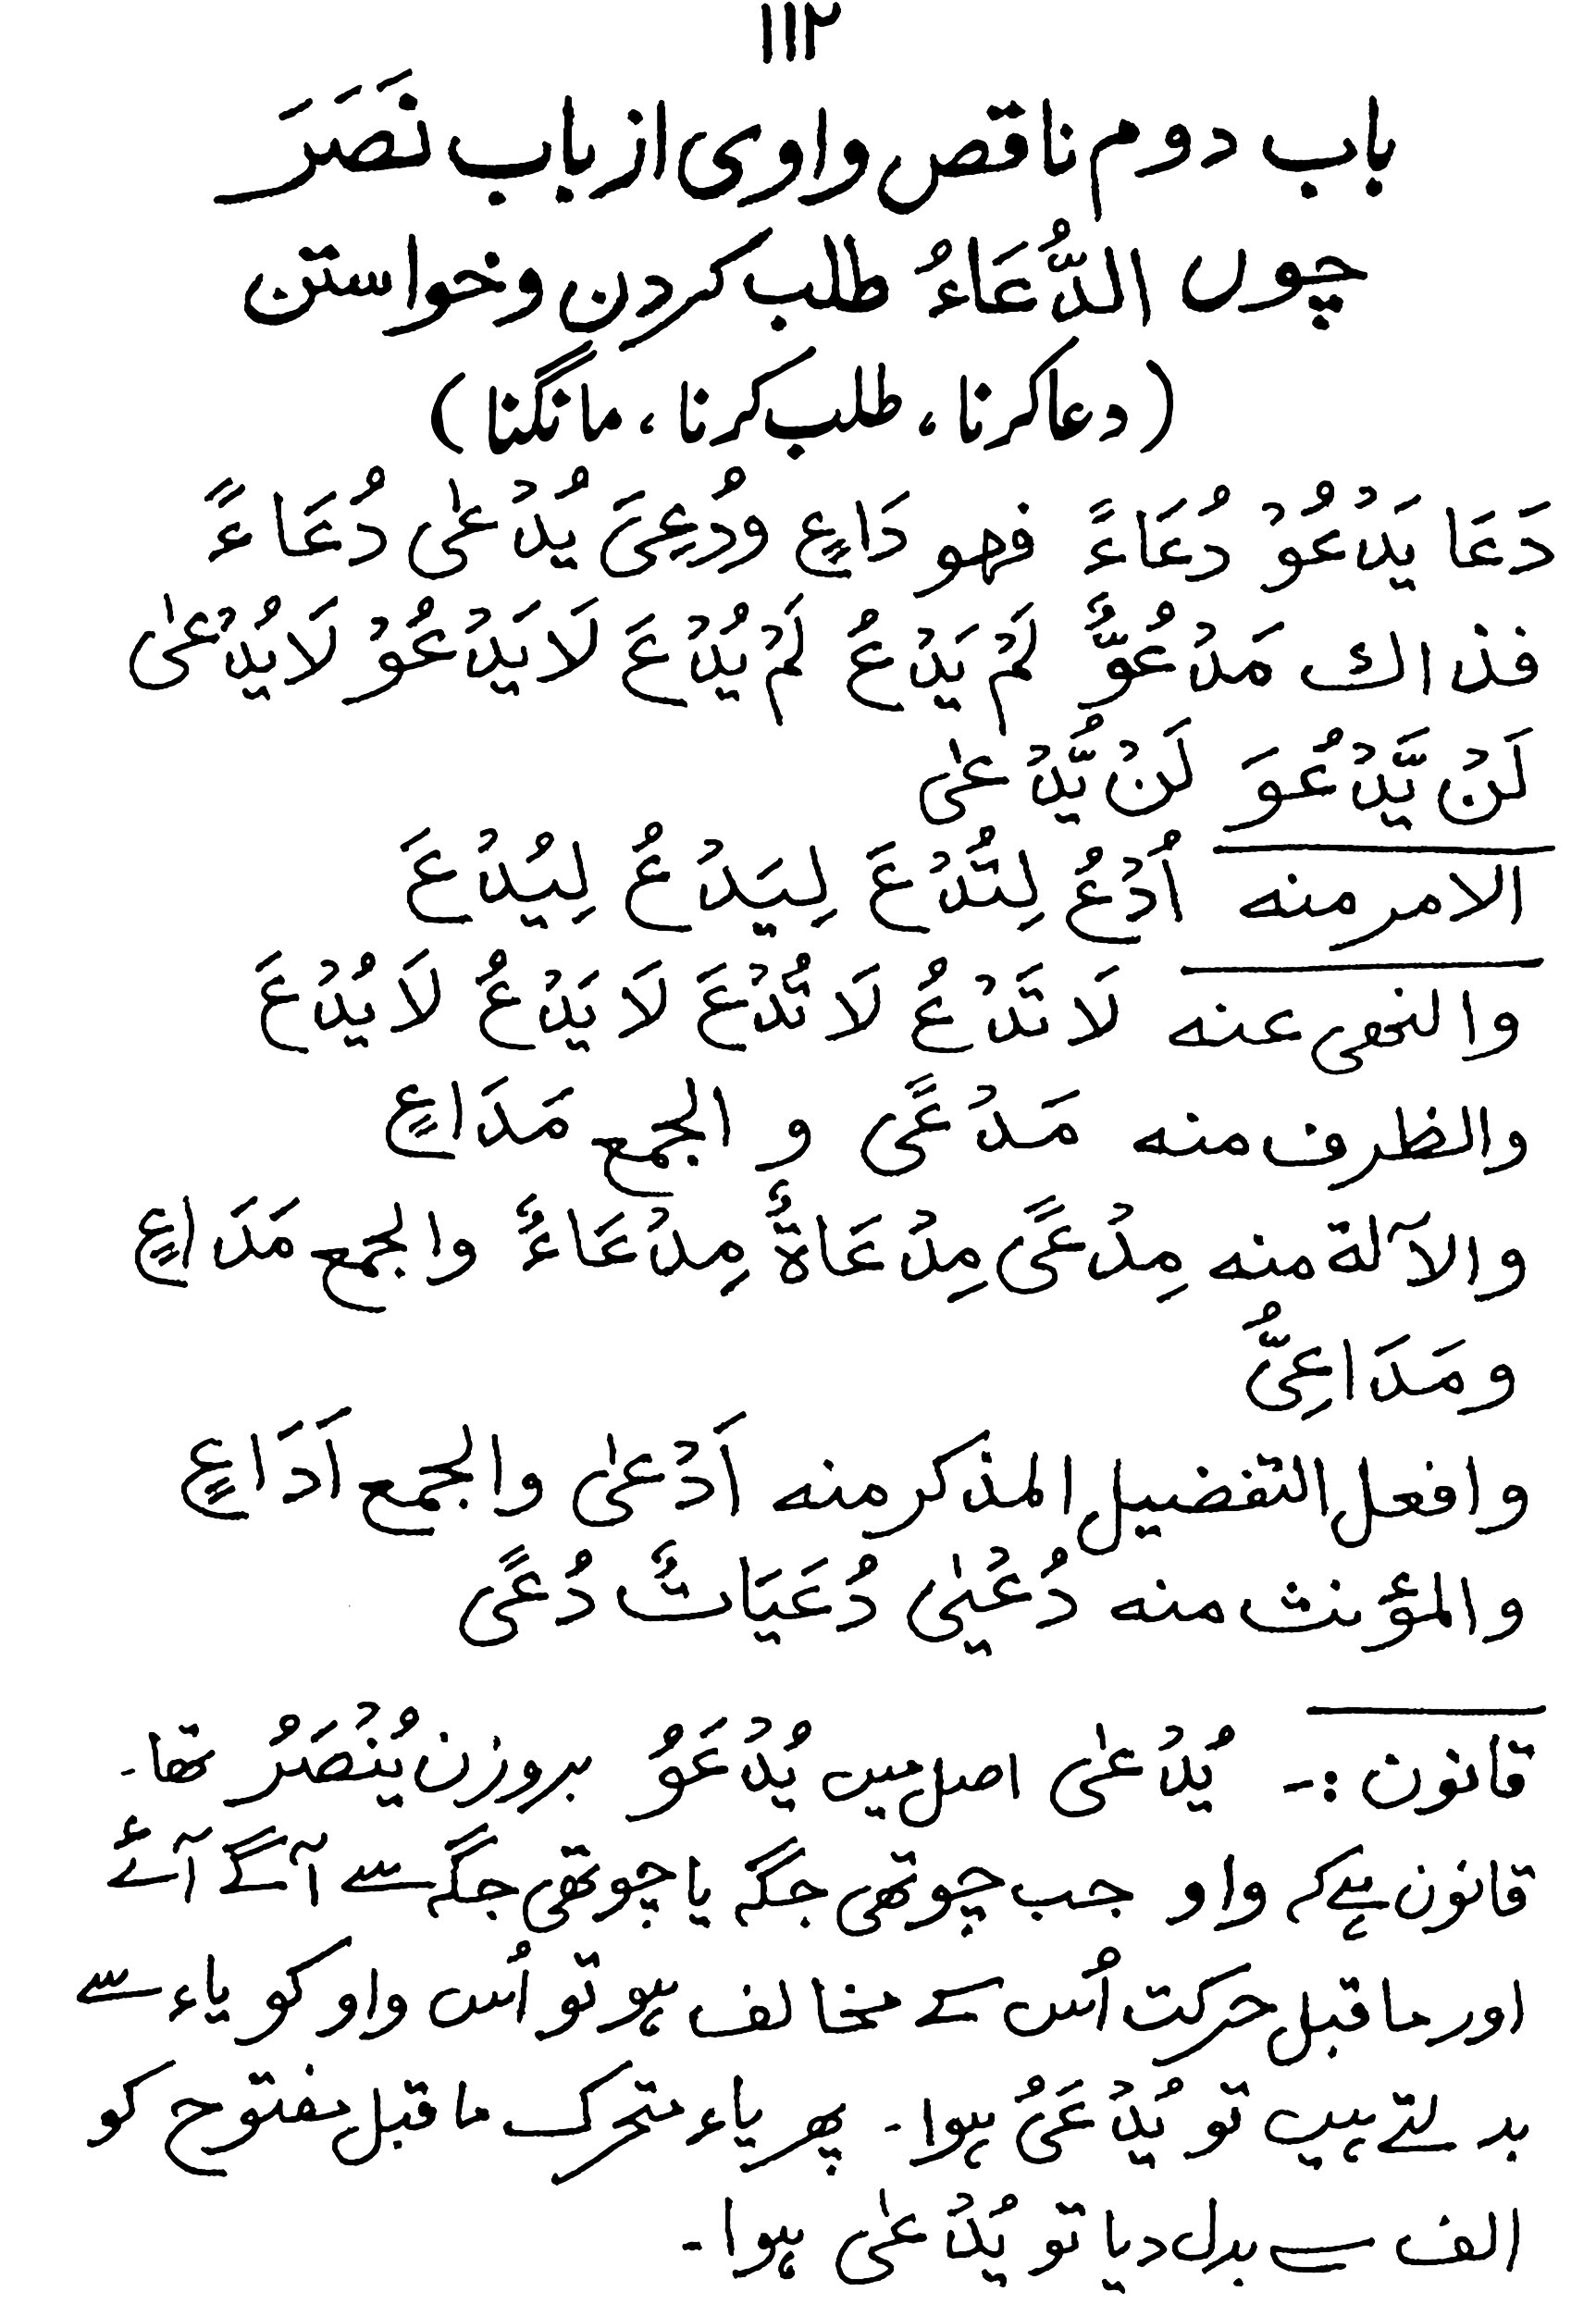 ۱۱۲
باب دوم ناقص واوی از باب نَصَرَ
چوں الدُّعَاءُ طلب کردن و خواستن
(دعا کرنا، طلب کرنا، مانگنا)
دَعَا يَدْعُوْ دُعَاءً فهو دَاعٍ ودُعِیَ يُدْعٰی دُعَاءً
فذاك مَدْعُوٌّ لَمْ يَدْعُ لَمْ يُدْعَ لَا يَدْعُوْ لَا يُدْعٰی
لَنْ يَّدْعُوَ لَنْ يُّدْعٰی
الامر منه اُدْعُ لِتُدْعَ لِيَدْعُ لِيُدْعَ
والنهی عنه لَا تَدْعُ لَا تُدْعَ لَا يَدْعُ لَا يُدْعَ
والظرف منه مَدْعًی و الجمع مَدَاعٍ
والآلة منه مِدْعًی مِدْعَاةٌ مِدْعَاءٌ والجمع مَدَاعٍ
ومَدَاعِیُّ
وافعل التفضيل المذكر منه اَدْعٰی والجمع اَدَاعٍ
والمؤنث منه دُعْيٰی دُعَيَاتٌ دُعًی
قانون :- يُدْعٰی اصل میں يُدْعَوُ بروزن يُنْصَرُ تھا۔
قانون ہے کہ واو جب چوتھی جگہ یا چوتھی جگہ سے آگے آئے
اور ماقبل حرکت اُس کے مخالف ہو تو اُس واو کو یاء سے
بدلتے ہیں تو يُدْعَیُ ہوا۔ پھر یاء متحرک ماقبل مفتوح کو
الف سے بدل دیا تو يُدْعٰی ہوا۔